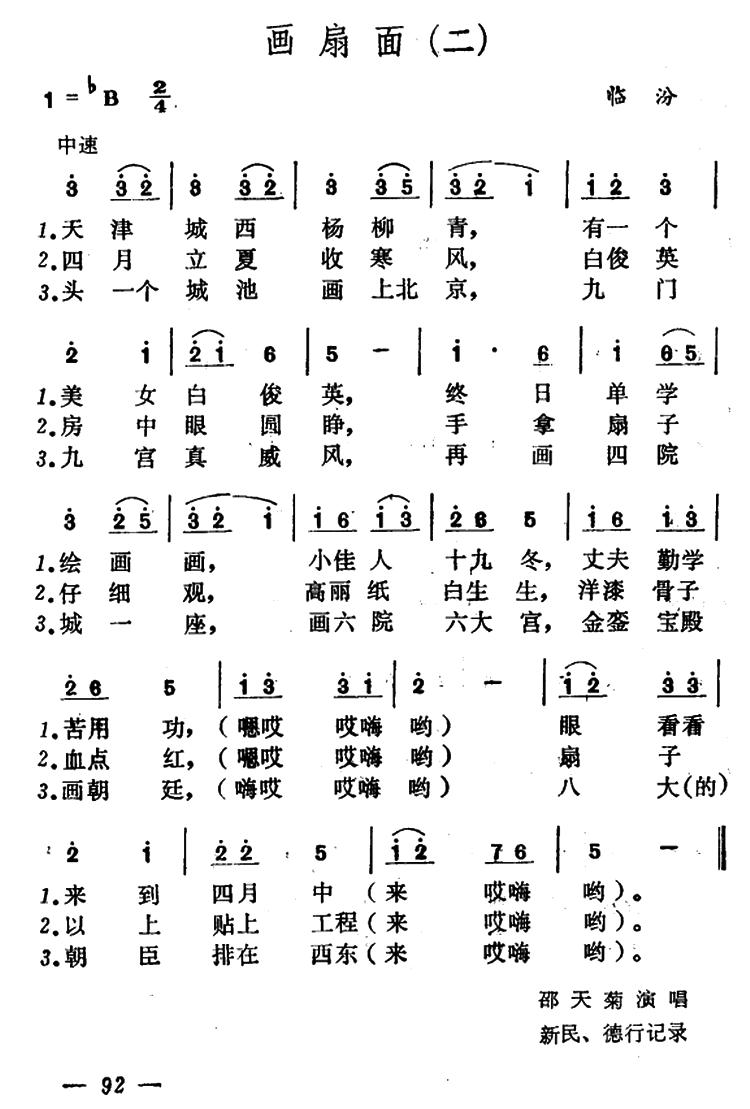 画扇面(二)
1=♭B 2/4 临汾
中速
3̇ 3̇2̇ | 3̇ 3̇2̇ | 3̇ 3̇5̇ | 3̇2̇ 1̇ | 1̇2̇ 3̇ |
1.天津城西杨柳青，有一个
2.四月立夏收寒风，白俊英
3.头一个城池画上北京，九门
2̇ 1̇ | 2̇1̇ 6 | 5 － | 1̇ · 6 | 1̇ 65 |
1.美女白俊英，终日单学
2.房中眼圆睁，手拿扇子
3.九宫真威风，再画四院
3̇ 2̇5̇ | 3̇2̇ 1̇ | 1̇6 1̇3̇ | 2̇6 5 | 1̇6 1̇3̇ |
1.绘画画，小佳人十九冬，丈夫勤学
2.仔细观，高丽纸白生生，洋漆骨子
3.城一座，画六院六大宫，金銮宝殿
2̇6 5 | 1̇3̇ 3̇1̇ | 2̇ － | 1̇2̇ 3̇3̇ |
1.苦用功，(嗯哎哎嗨哟)眼看看
2.血点红，(嗯哎哎嗨哟)扇子
3.画朝廷，(嗨哎哎嗨哟)八大(的)
2̇ 1̇ | 2̇2̇ 5 | 1̇2̇ 76 | 5 － ‖
1.来到四月中(来哎嗨哟)。
2.以上贴上工程(来哎嗨哟)。
3.朝臣排在西东(来哎嗨哟)。
邵天菊演唱
新民、德行记录
— 92 —